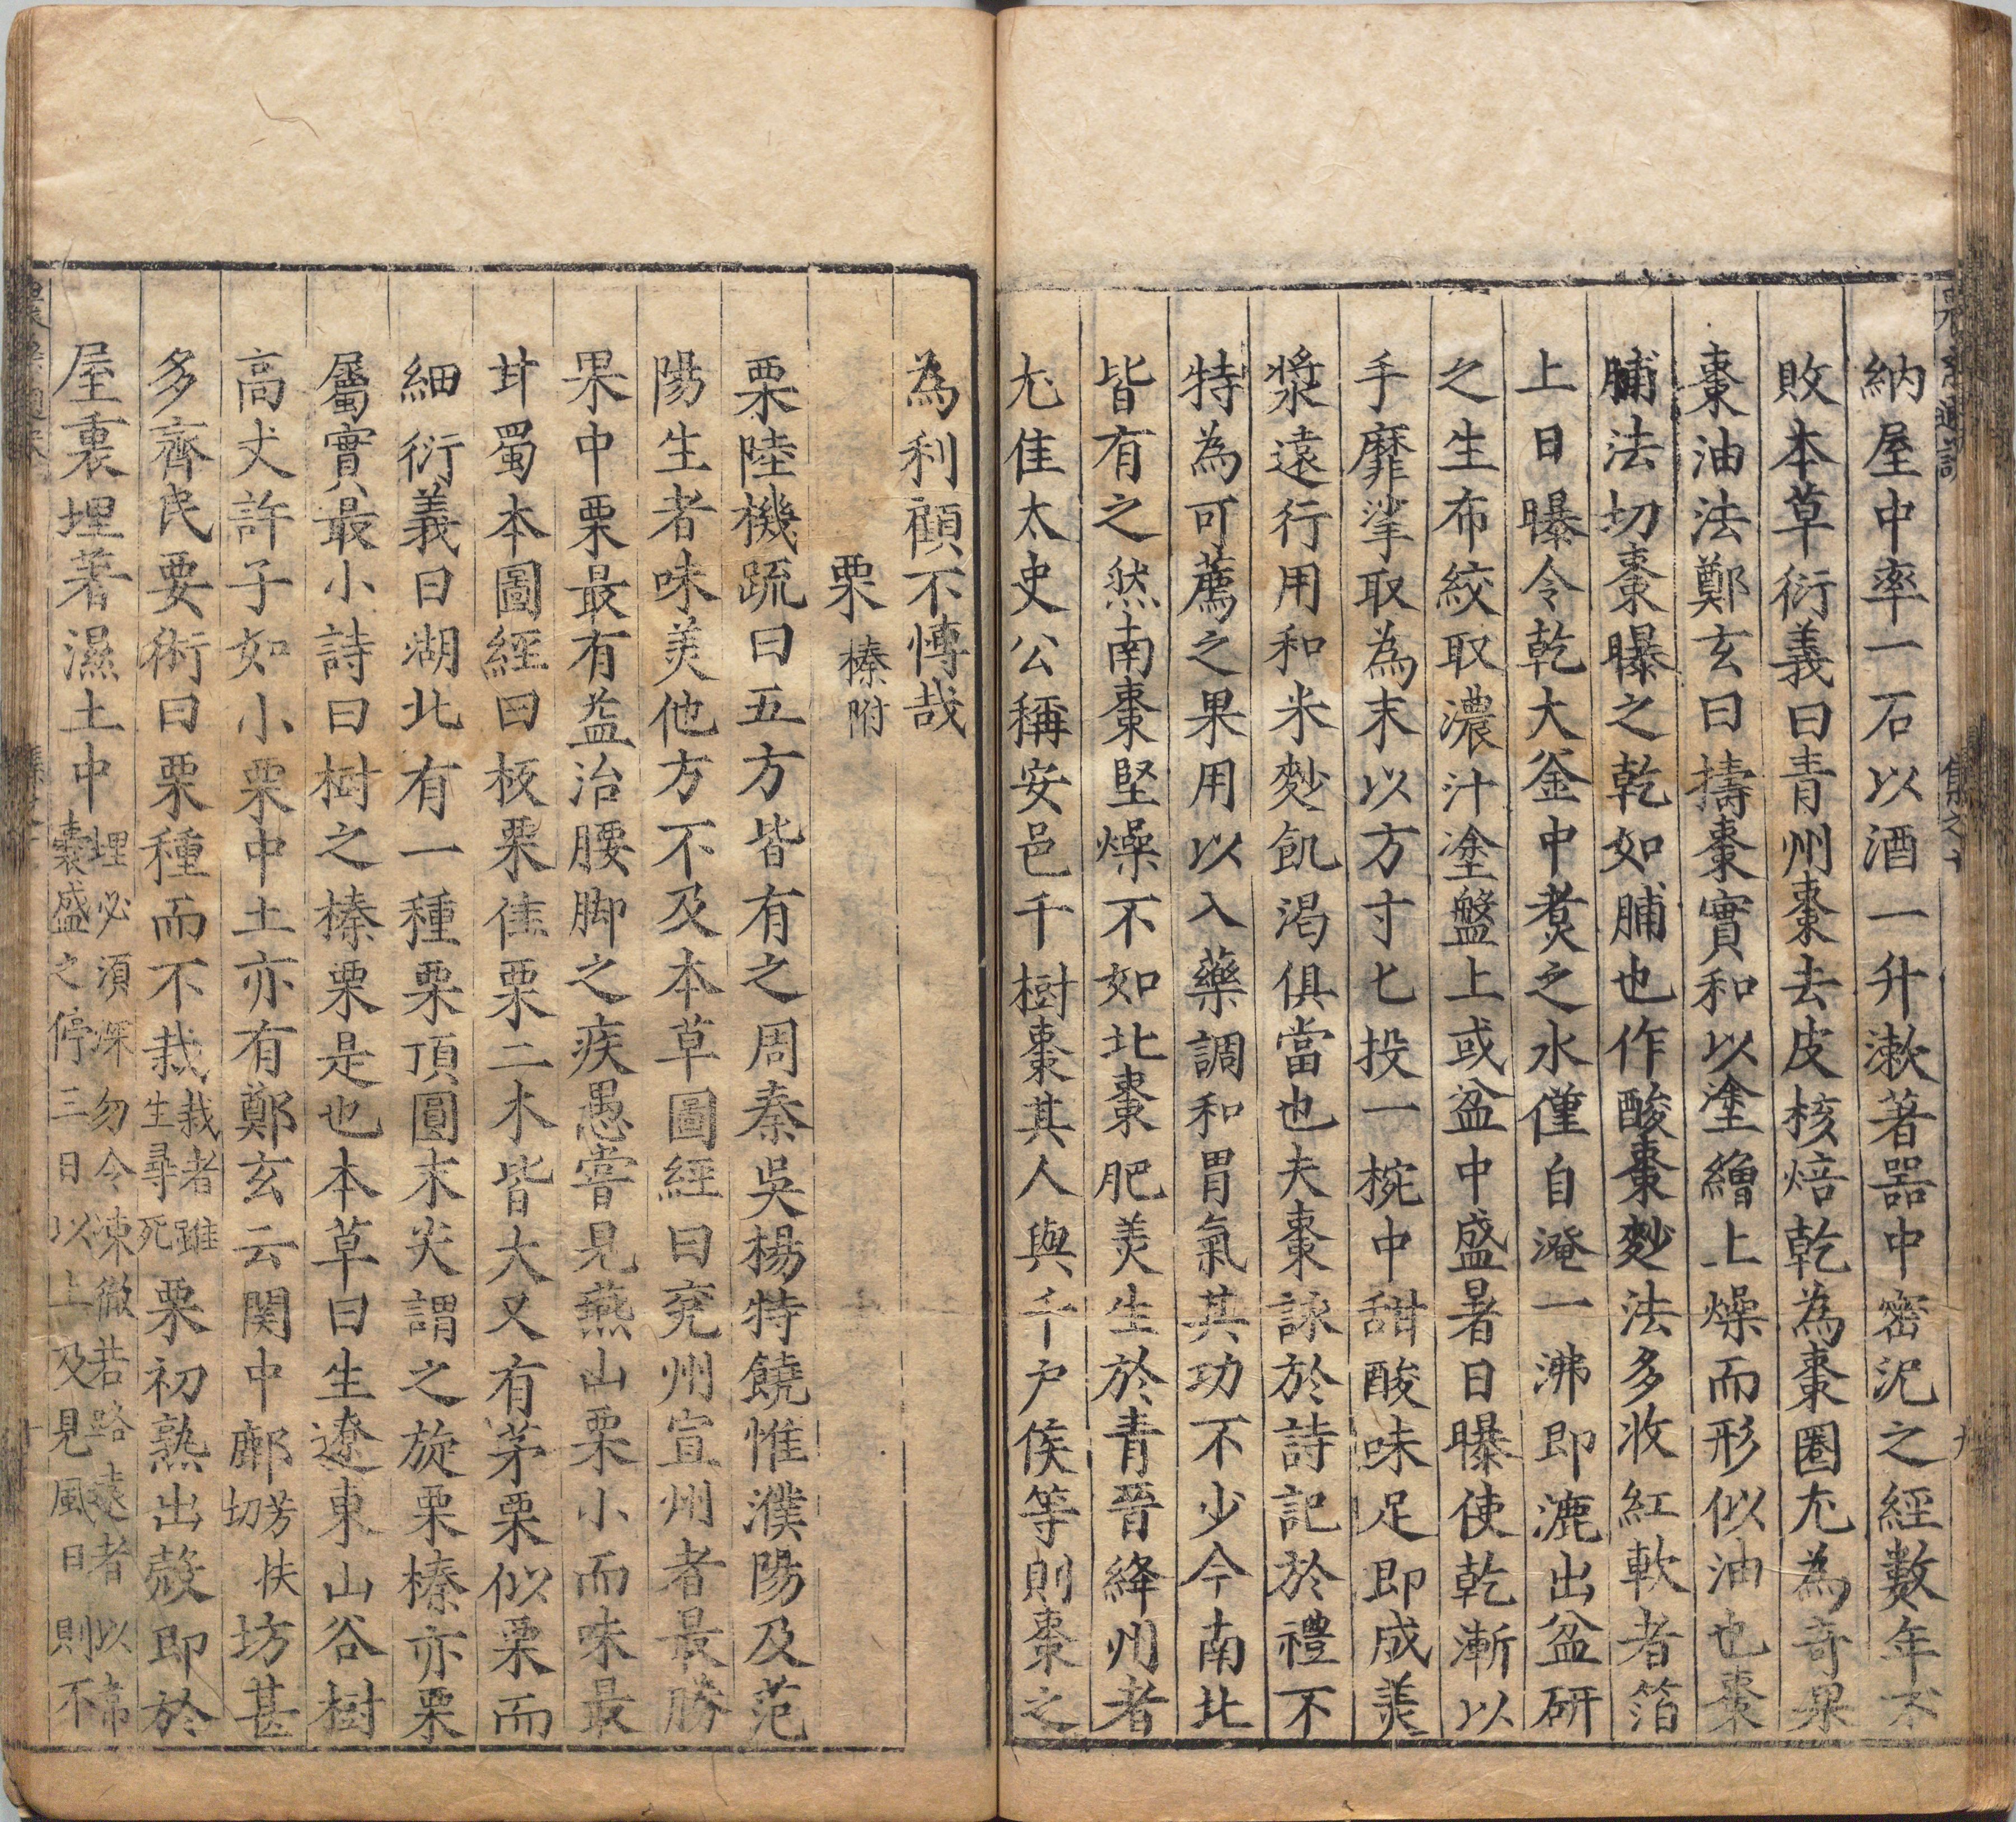 納屋中率一石以酒一升漱著器中密泥之經數年不
敗本草衍義曰青州棗去皮核焙乾為棗圈尤為奇果
棗油法鄭玄曰擣棗實和以塗繒上燥而形似油也棗
脯法切棗曝之乾如脯也作酸棗麨法多收紅軟者箔
上日曝令乾大釜中煑之水僅自淹一沸即漉出盆研
之生布絞取濃汁塗盤上或盆中盛暑日曝使乾漸以
手靡挲取為末以方寸匕投一椀中甜酸味足即成美
漿遠行用和米麨飢渴俱當也夫棗詠於詩記於禮不
特為可薦之果用以入藥調和胃氣其功不少今南北
皆有之然南棗堅燥不如北棗肥美生於青晉絳州者
尤佳太史公稱安邑千樹棗其人與千户侯等則棗之
為利顧不愽哉
栗 榛附
栗陸機䟽曰五方皆有之周秦吳楊特饒惟濮陽及范
陽生者味美他方不及本草圖經曰兗州宣州者最勝
果中栗最有益治腰脚之疾愚嘗見燕山栗小而味最
甘蜀本圖經曰板栗佳栗二木皆大又有茅栗似栗而
細衍義曰湖北有一種栗頂圓末尖謂之旋栗榛亦栗
屬實最小詩曰樹之榛栗是也本草曰生遼東山谷樹
高丈許子如小栗中土亦有鄭玄云関中鄜芳扶切坊甚
多齊民要術曰栗種而不栽栽者雖生尋死栗初熟出殼即於
屋裏埋著濕土中埋必須深勿令凍徹若路遠者以韋囊盛之停三日以上及見風日則不